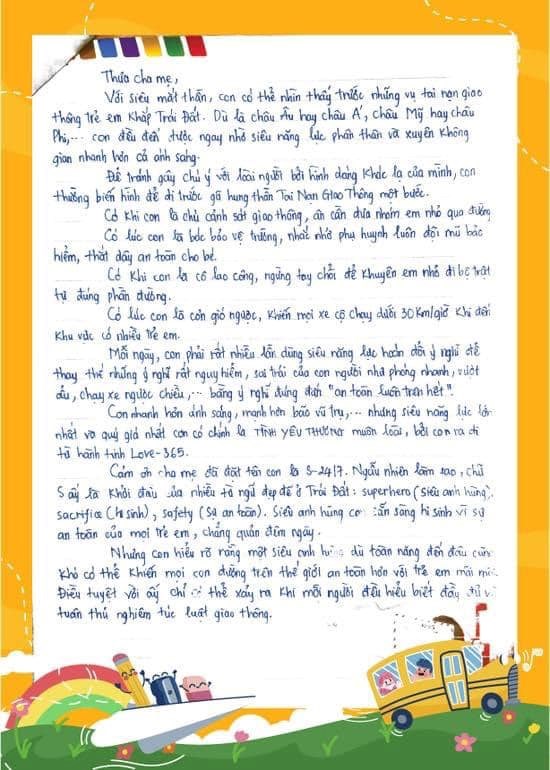 Thưa cha mẹ,
Với siêu mắt thần, con có thể nhìn thấy trước những vụ tai nạn giao
thông trẻ em khắp Trái Đất. Dù là châu Âu hay châu Á, châu Mỹ hay châu
Phi,... con đều đến được ngay nhờ siêu năng lực phân thân và xuyên không
gian nhanh hơn cả ánh sáng.
Để tránh gây chú ý với loài người bởi hình dáng khác lạ của mình, con
thường biến hình để đi trước gã hung thần Tai Nạn Giao Thông một bước.
Có khi con là chú cảnh sát giao thông, ân cần đưa nhóm em nhỏ qua đường
Có lúc con là bác bảo vệ trường, nhắc nhở phụ huynh luôn đội mũ bảo
hiểm, thắt dây an toàn cho bé.
Có khi con là cô lao công, ngừng tay chổi để khuyên em nhỏ đi bộ trật
tự đúng phần đường.
Có lúc con là cơn gió ngược, khiến mọi xe cộ chạy dưới 30 Km/giờ khi đến
khu vực có nhiều trẻ em.
Mỗi ngày, con phải rất nhiều lần dùng siêu năng lực hoán đổi ý nghĩ để
thay thế những ý nghĩ rất nguy hiểm, sai trái của con người như phóng nhanh, vượt
ẩu, chạy xe ngược chiều,... bằng ý nghĩ đúng đắn "an toàn luôn trên hết".
Con nhanh hơn ánh sáng, mạnh hơn bão vũ trụ,... nhưng siêu năng lực lớn
nhất và quý giá nhất con có chính là TÌNH YÊU THƯƠNG muôn loài, bởi con ra đi
từ hành tinh Love-365.
Cảm ơn cha mẹ đã đặt tên con là S-24/7. Ngẫu nhiên làm sao, chữ
S ấy là khởi đầu của nhiều từ ngữ đẹp đẽ ở Trái Đất: superhero (siêu anh hùng),
sacrifice (hi sinh), safety (sự an toàn). Siêu anh hùng con sẵn sàng hi sinh vì sự
an toàn của mọi trẻ em, chẳng quản đêm ngày.
Nhưng con hiểu rõ rằng một siêu anh hùng dù toàn năng đến đâu cũng
khó có thể khiến mọi con đường trên thế giới an toàn hơn với trẻ em mãi mãi.
Điều tuyệt vời ấy chỉ có thể xảy ra khi mỗi người đều hiểu biết đầy đủ và
tuân thủ nghiêm túc luật giao thông.